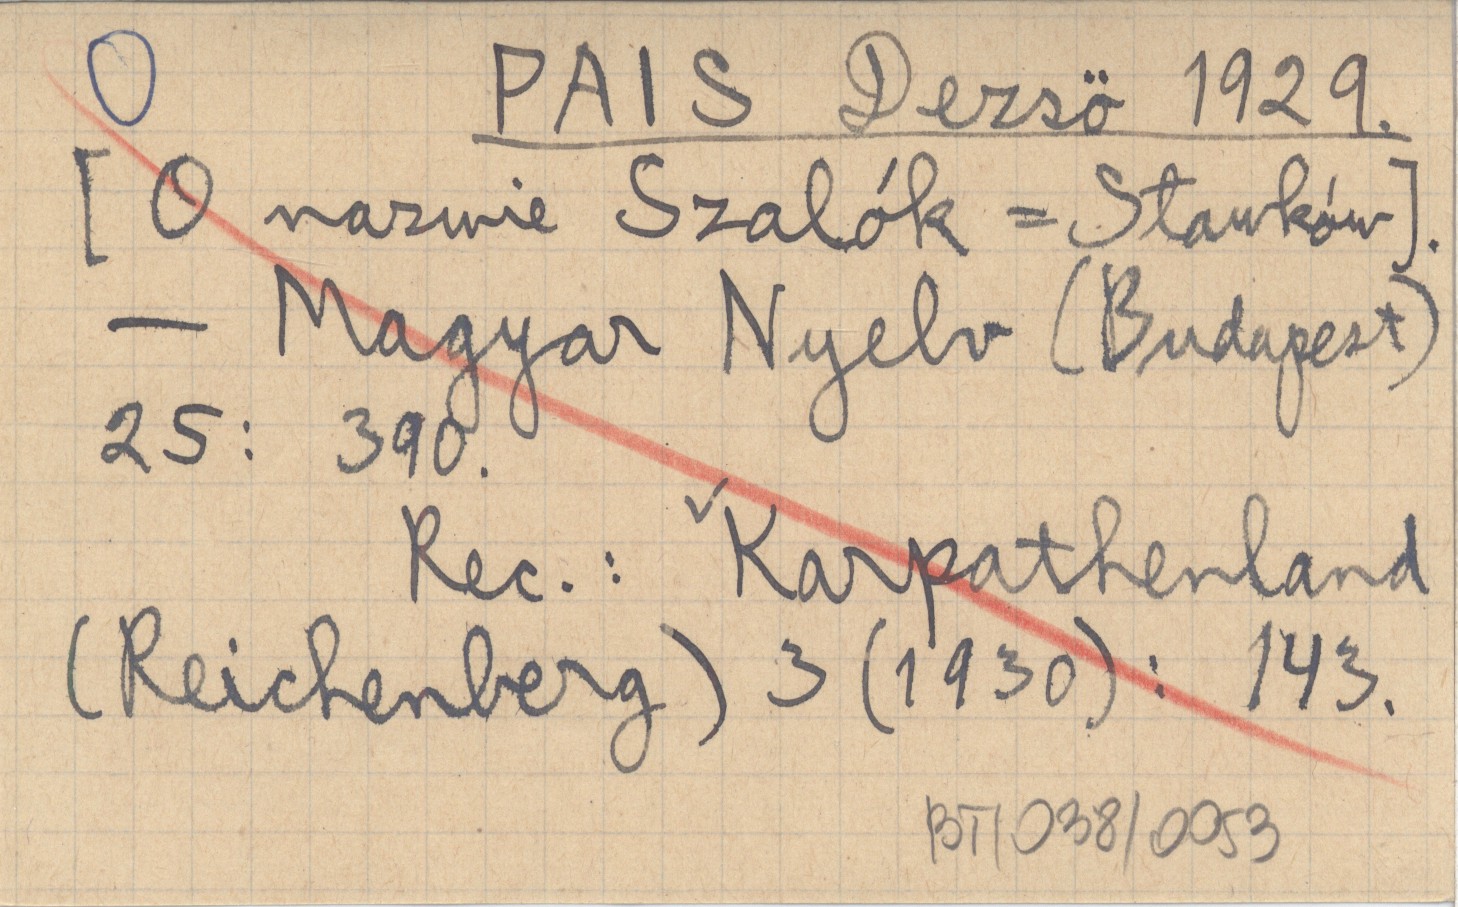 O PAIS Dezsö 1929.
[O nazwie Szalók = Stawków].
— Magyar Nyelv (Budapest)
25: 390.
Rec.: ✓Karpathenland
(Reichenberg) 3 (1930): 143.
BT/038/0053